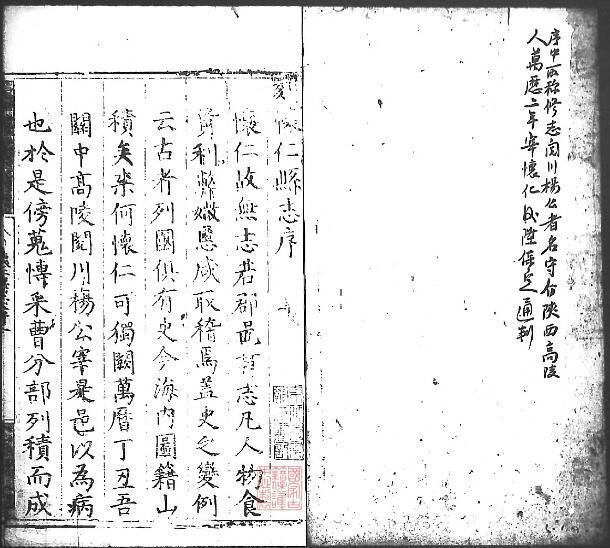 序中所称修志閲川楊公者名守介陝西高陵
人萬歷二年宰懷仁後陞保定通判
懷仁縣志序
懷仁故無志若郡邑有志凡人物食
貨利弊媺慝咸取稽焉盖史之變例
云古者列國俱有史今海内圖籍山
積矣柰何懷仁可獨闕萬曆丁丑吾
關中高陵閲川楊公宰是邑以為病
也於是傍蒐慱采曹分部列積而成